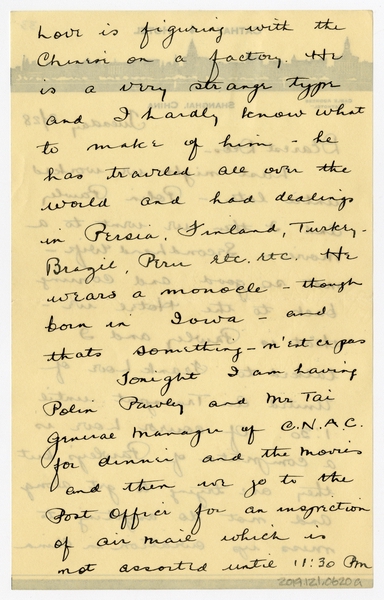 Love is figuring with the
Chinese on a factory. He
is a very strange type
and I hardly know what
to make of him - he
has traveled all over the
world and had dealings
in Persia, Finland, Turkey -
Brazil, Peru etc. etc. He
wears a monocle - though
born in Iowa - and
thats something - n'est ce pas
Tonight I am having
Polin Pawley and Mr Tai
General Manager of C.N.A.C.
for dinner and the movies
and then we go to the
Post Office for an inspection
of air mail which is
not assorted until 11:30 Pm
2019.121.0620a